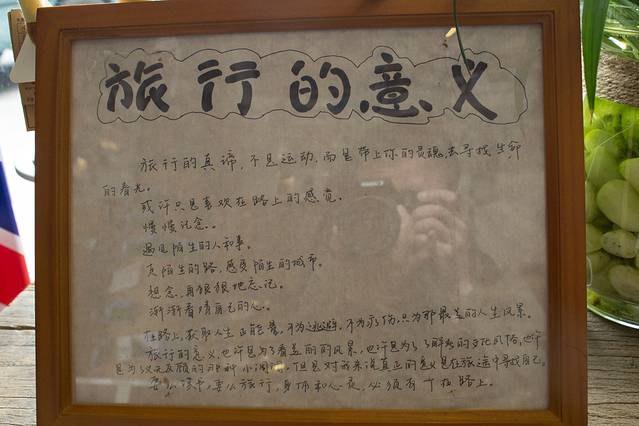 旅行的意义
旅行的真谛,不是运动,而是带上你的灵魂,去寻找生命
的春光。
或许只是喜欢在路上的感觉。
慢慢记念。
遇见陌生的人和事。
陌生的路,感受陌生的城市。
想念,再狠狠地忘记。
渐渐看清自己的心。
在路上,获取人生正能量,不为逃避,不为疗伤,只为那最美的人生风景。
旅行的意义,也许是为了看美丽的风景,也许是为了了解当地的文化风俗,也许
是为了义无反顾的那种小,但是对我来说真正的意义是在旅途中寻找自己。
要么读书,要么旅行,身体和心灵,必须有一个在路上。